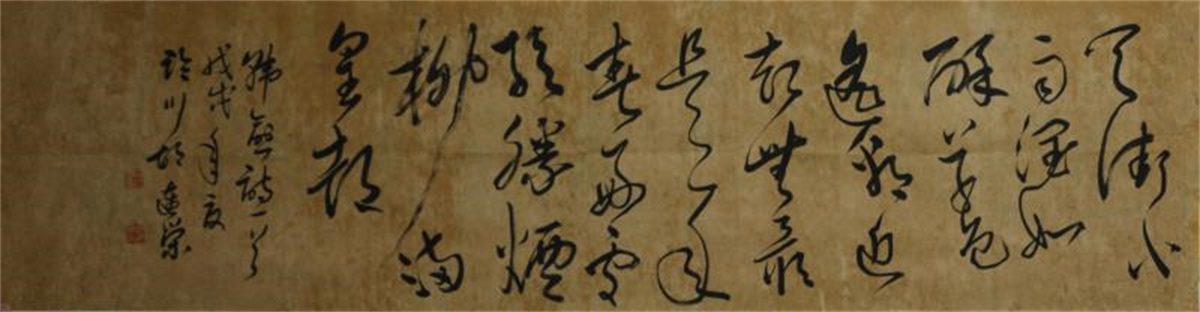 天街小
雨潤如
酥草色
遙看近
却無最
是一年
春好處
絕勝煙
柳滿
皇都
韓愈詩一首
戊戌年夏
川胡榮